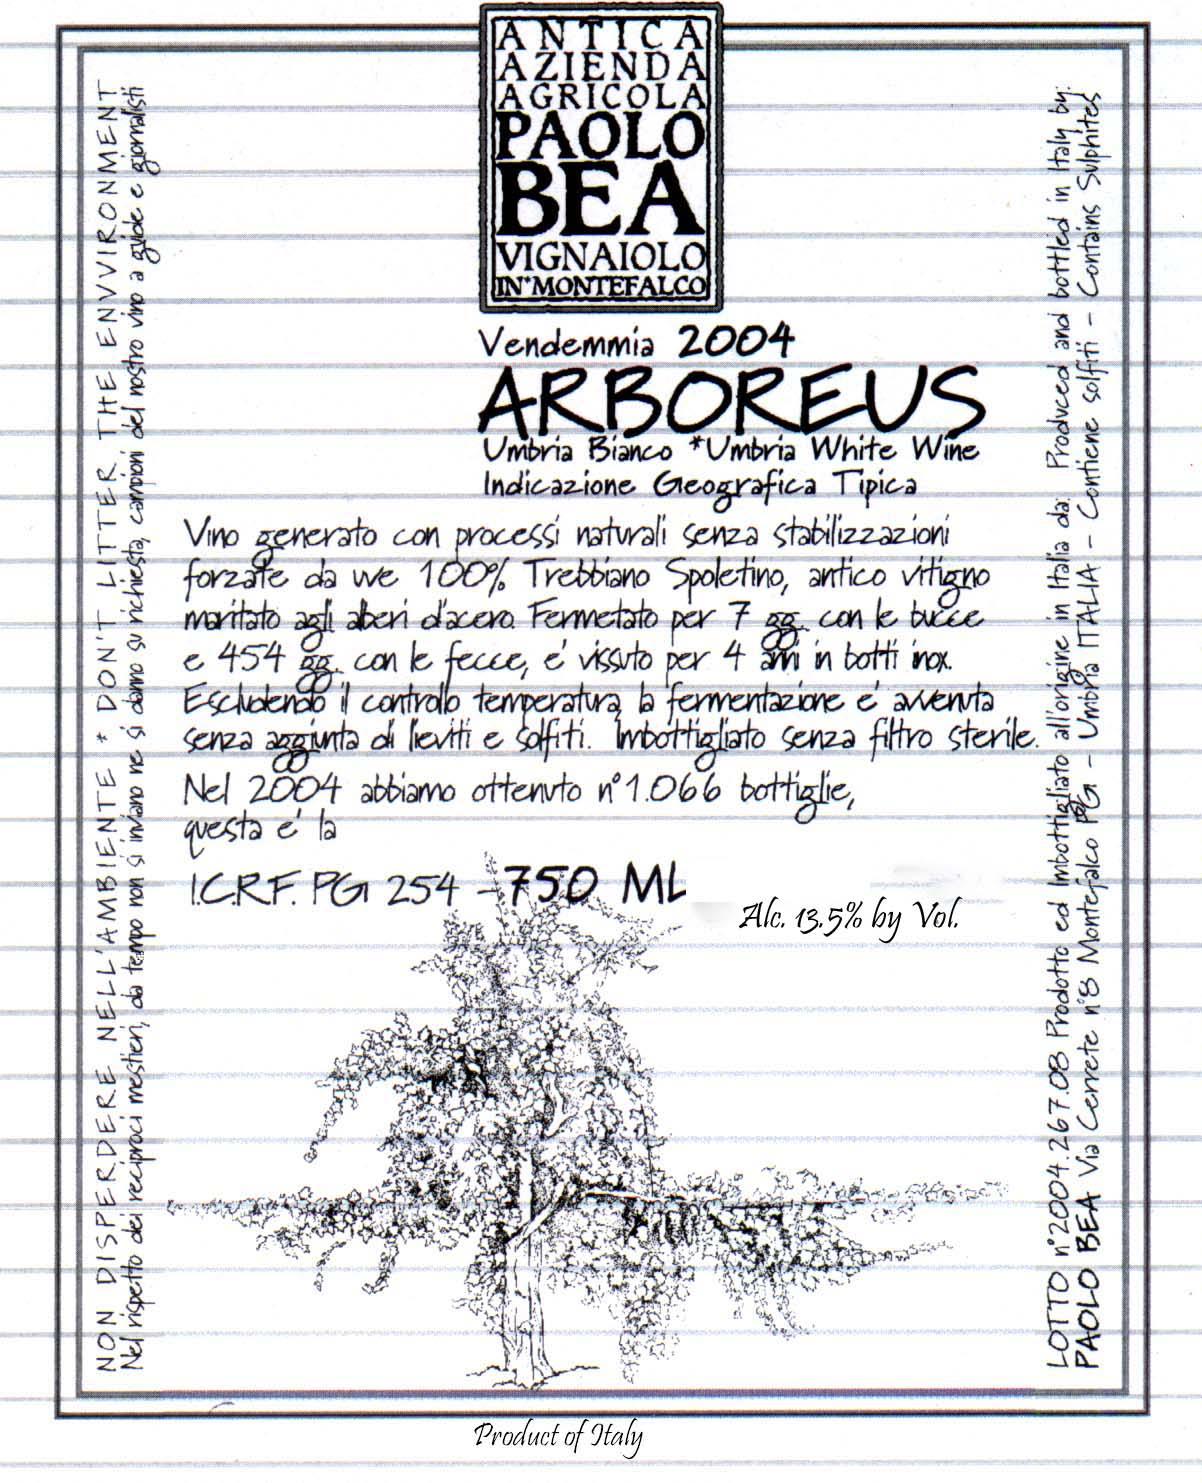 ANTICA
AZIENDA
AGRICOLA
PAOLO
BEA
VIGNAIOLO
IN*MONTEFALCO
Vendemmia 2004
ARBOREUS
Umbria Bianco *Umbria White Wine
Indicazione Geografica Tipica
Vino generato con processi naturali senza stabilizzazioni
forzate da uve 100% Trebbiano Spoletino, antico vitigno
maritato agli alberi d'acero. Fermetato per 7 gg. con le bucce
e 454 gg. con le fecce, e' vissuto per 4 anni in botti inox.
Escludendo il controllo temperatura, la fermentazione e' avvenuta
senza aggiunta di lieviti e solfiti. Imbottigliato senza filtro sterile.
Nel 2004 abbiamo ottenuto n°1.066 bottiglie,
questa e' la
I.C.R.F. PG 254 - 750 ML
Alc. 13.5% by Vol.
NON DISPERDERE NELL'AMBIENTE * DON'T LITTER THE ENVVIRONMENT
Nel rispetto dei reciproci mestieri, da tempo non si inviano ne si danno su richiesta, campioni del nostro vino a guide e giornalisti
LOTTO n°2004.267.08 Prodotto ed Imbottigliato all'origine in Italia da: Produced and bottled in Italy by:
PAOLO BEA Via Cerrete n°8 Montefalco PG - Umbria ITALIA - Contiene solfiti - Contains Sulphites
Product of Italy